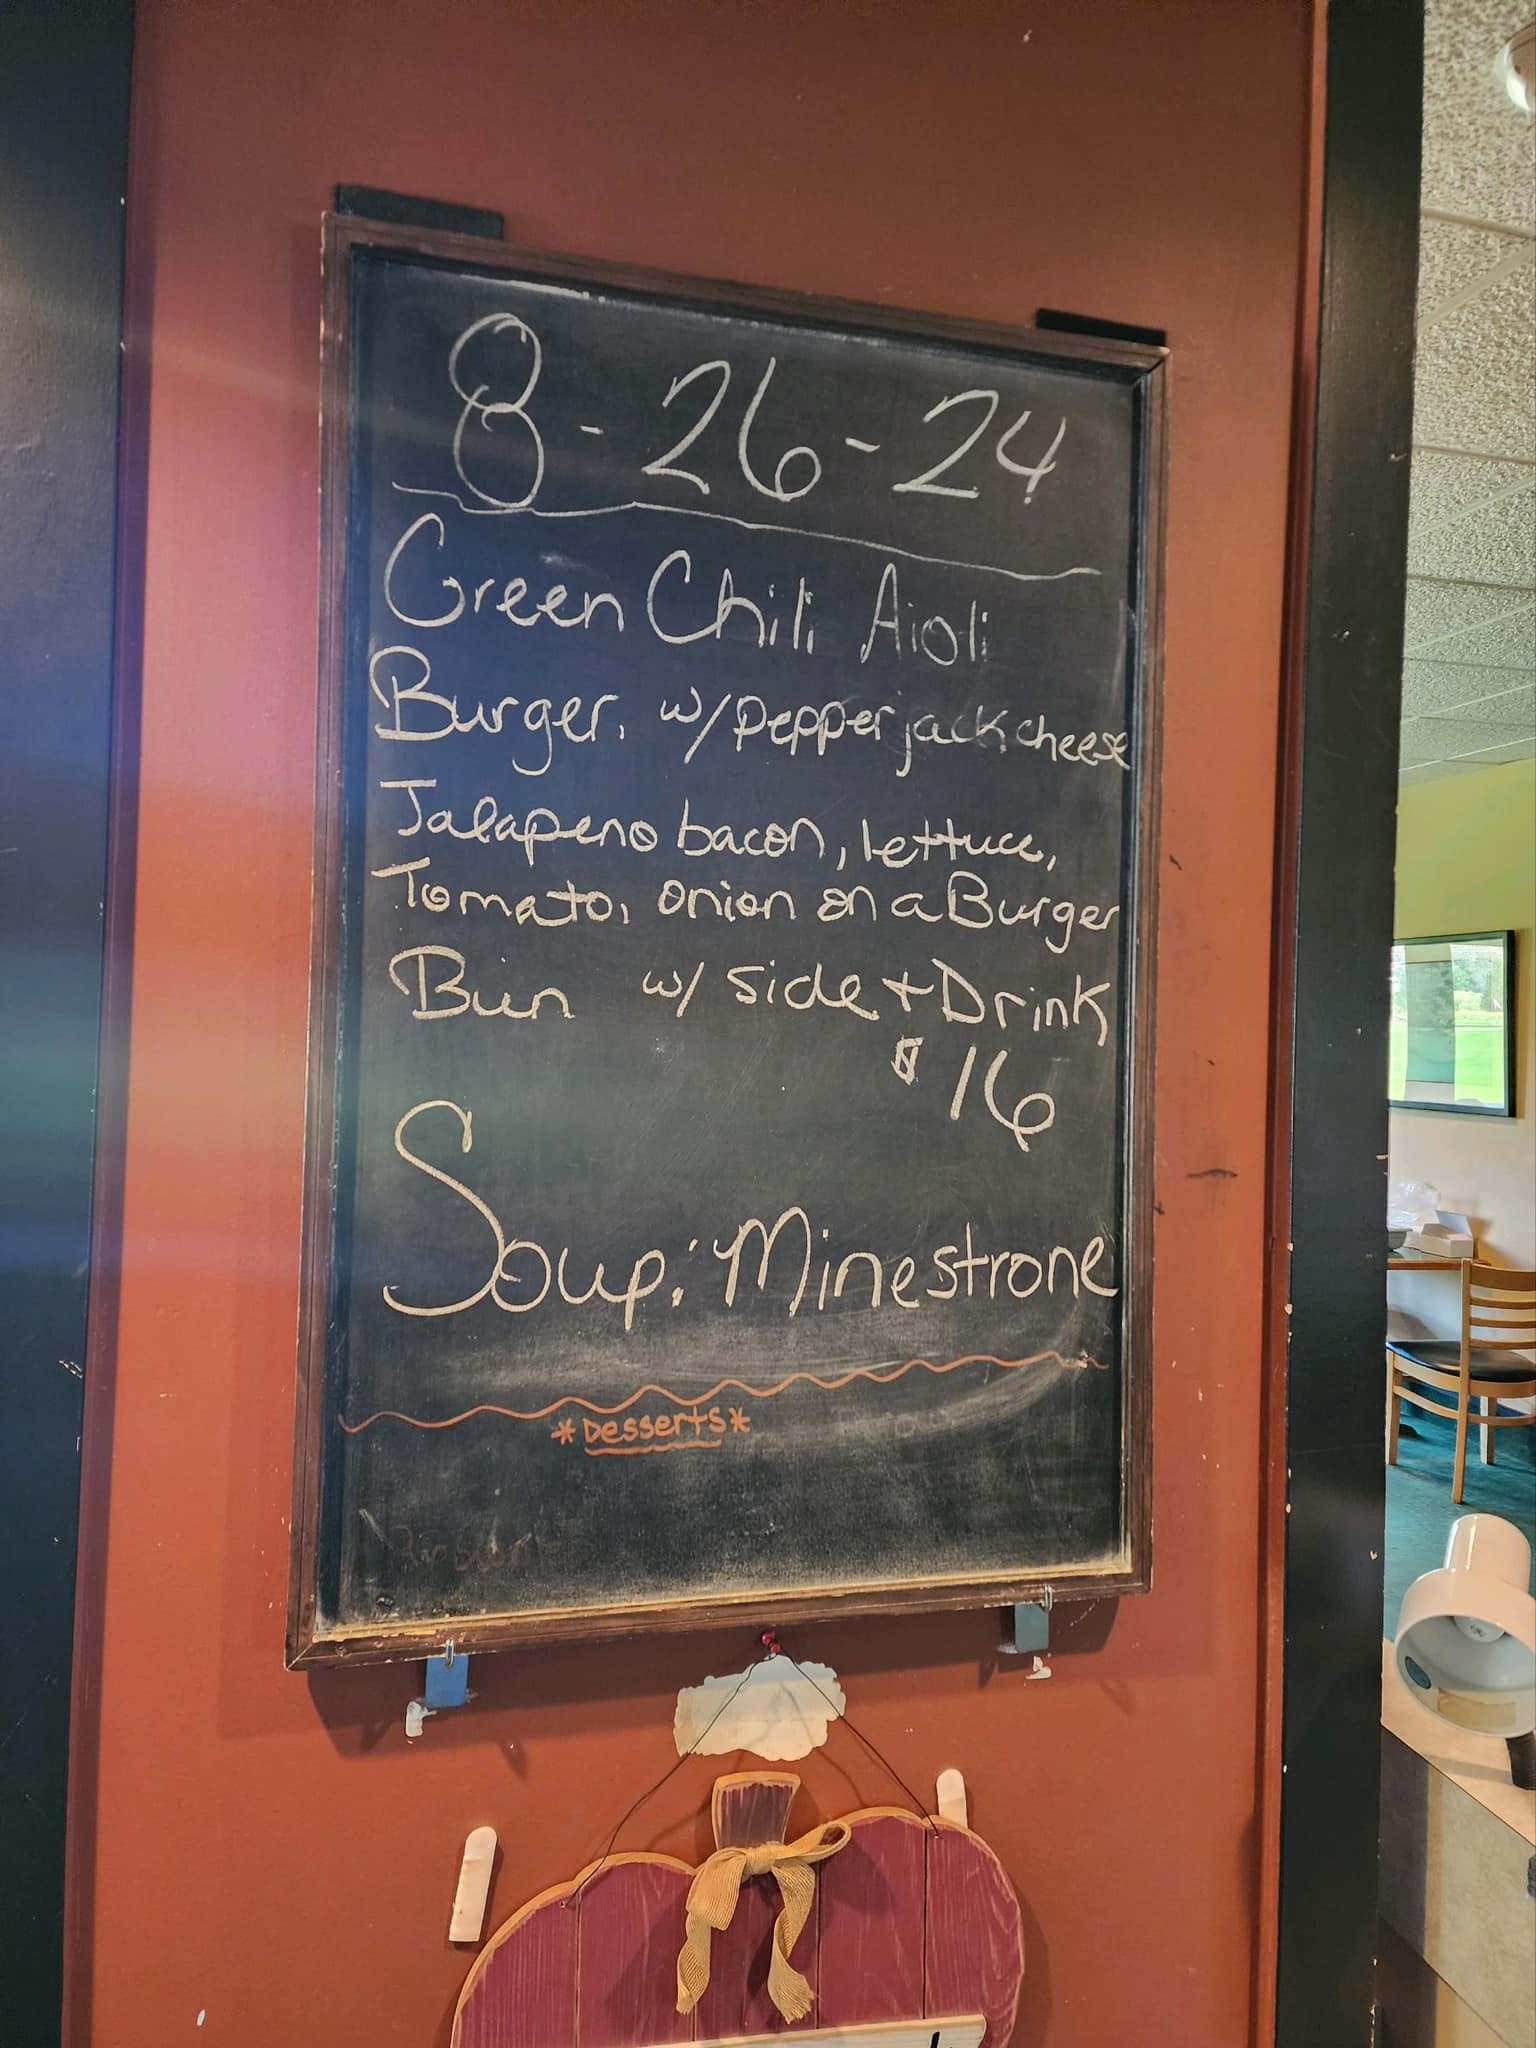 8-26-24
Green Chili Aioli
Burger. w/ pepper jack cheese
Jalapeno bacon, lettuce,
Tomato, onion on a Burger
Bun w/ side + Drink
$16
Soup: Minestrone
*Desserts*